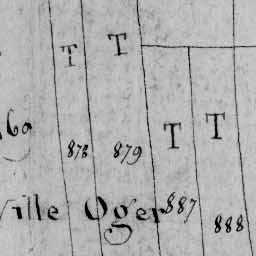 T T
T T
60
878 879
Ville Oger 887
888